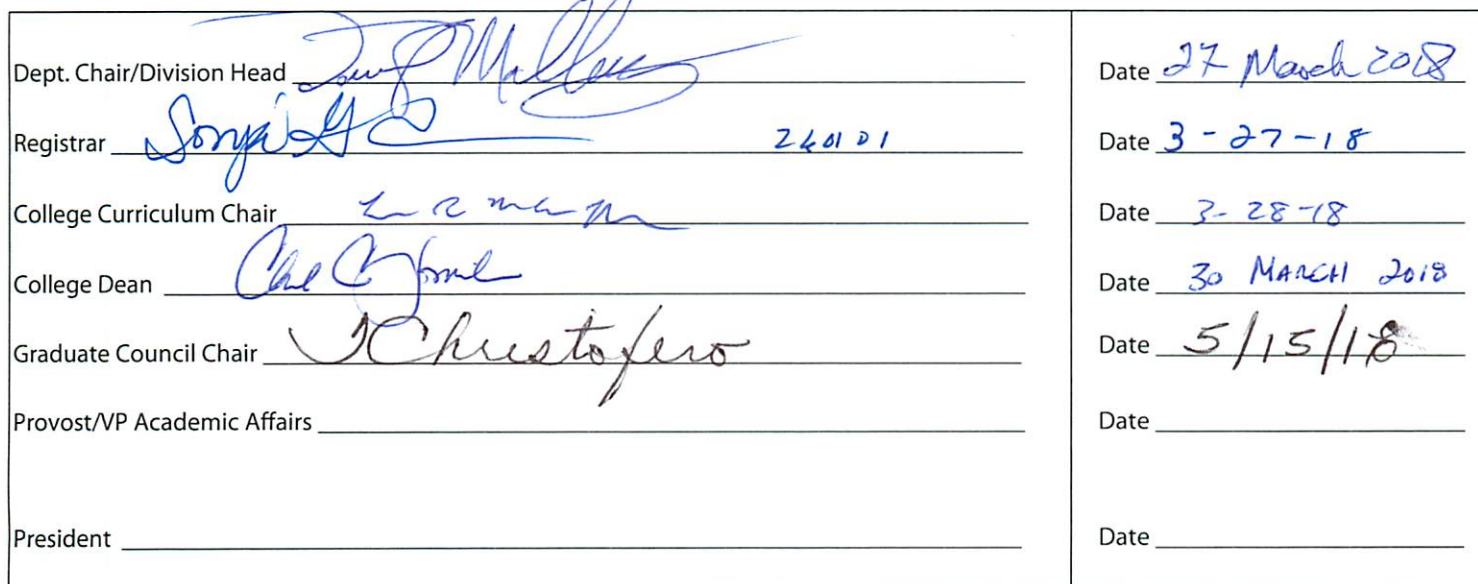 Dept. Chair/Division Head Date 27 March 2018
Registrar Sonja G 260101 Date 3-27-18
College Curriculum Chair Date 3-28-18
College Dean Date 30 MARCH 2018
Graduate Council Chair TChristofero Date 5/15/18
Provost/VP Academic Affairs Date
President Date